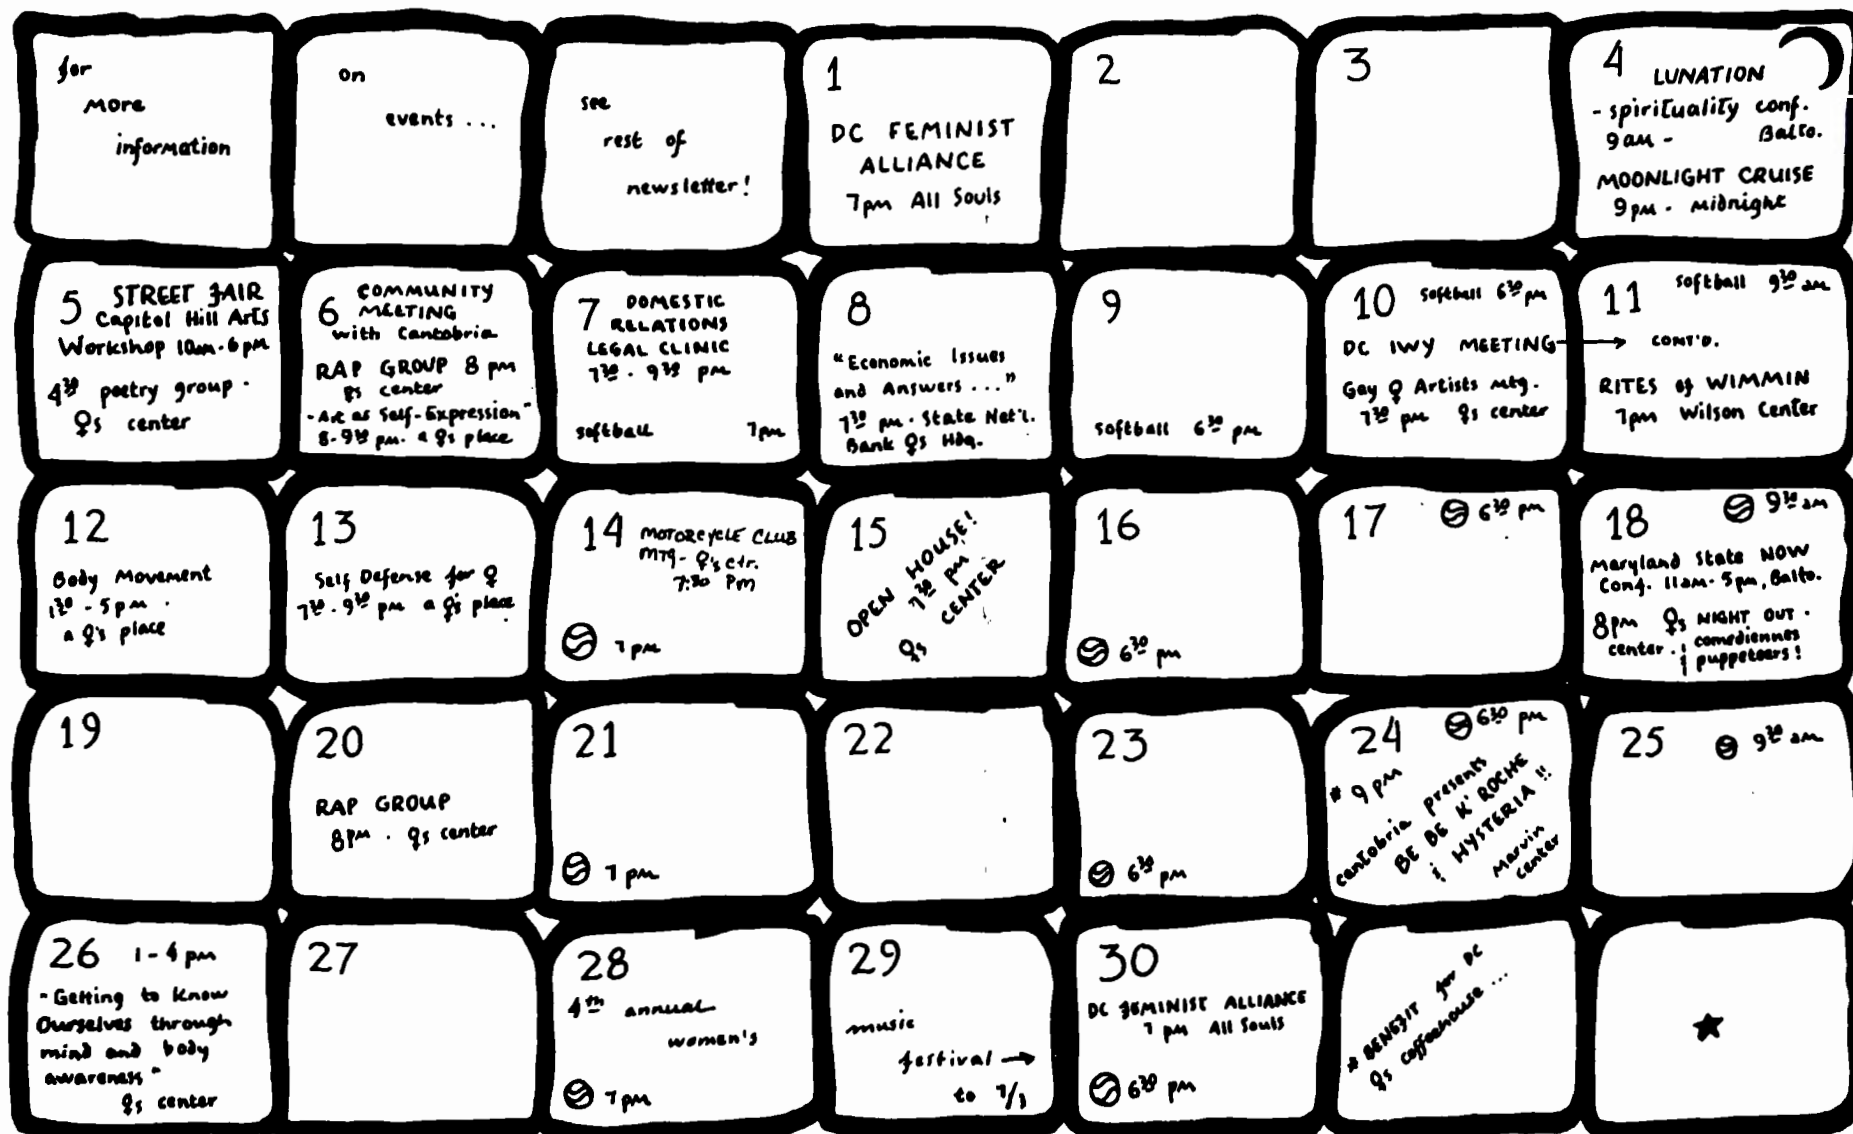 for
more
information
on
events ...
see
rest of
newsletter!
1
DC FEMINIST
ALLIANCE
7pm All Souls
2
3
4 LUNATION
- spirituality conf.
9am - Balto.
MOONLIGHT CRUISE
9pm - midnight
5 STREET FAIR
Capitol Hill Arts
Workshop 10am-6pm
4³⁰ poetry group -
♀s center
6 COMMUNITY
MEETING
with Cantobria
RAP GROUP 8 pm
♀s center
"Art as Self-Expression"
8-9³⁰ pm. a ♀s place
7 DOMESTIC
RELATIONS
LEGAL CLINIC
7³⁰ - 9³⁰ pm
softball 7pm
8
"Economic Issues
and Answers ..."
7³⁰ pm. State Nat'l.
Bank ♀s Hdq.
9
softball 6³⁰ pm
10 softball 6³⁰ pm
DC IWY MEETING →
Gay ♀ Artists mtg.
7³⁰ pm ♀s center
11 softball 9³⁰ am
CONT'D.
RITES of WIMMIN
7pm Wilson Center
12
Body Movement
1³⁰ - 5pm .
a ♀'s place
13
Self Defense for ♀
7³⁰ - 9³⁰ pm a ♀'s place
14 MOTORCYCLE CLUB
MTG- ♀'s ctr.
7:30 Pm
7 pm
15
OPEN HOUSE!
7³⁰ pm
♀s CENTER
16
6³⁰ pm
17 6³⁰ pm
18 9³⁰ am
Maryland State NOW
Conf. 11am-5pm, Balto.
8pm ♀s NIGHT OUT -
center. & comediennes
& puppeteers!
19
20
RAP GROUP
8pm . ♀s center
21
7 pm
22
23
6³⁰ pm
24 6³⁰ pm
* 9 pm
cantobria presents
BE BE K'ROCHE
& HYSTERIA!!
Marvin
center
25 9³⁰ am
26 1-4 pm
"Getting to Know
Ourselves through
mind and body
awareness"
♀s center
27
28
4th annual
women's
7pm
29
music
festival →
to 7/3
30
DC FEMINIST ALLIANCE
7 pm All Souls
6³⁰ pm
* BENEFIT for DC
♀s coffeehouse ...